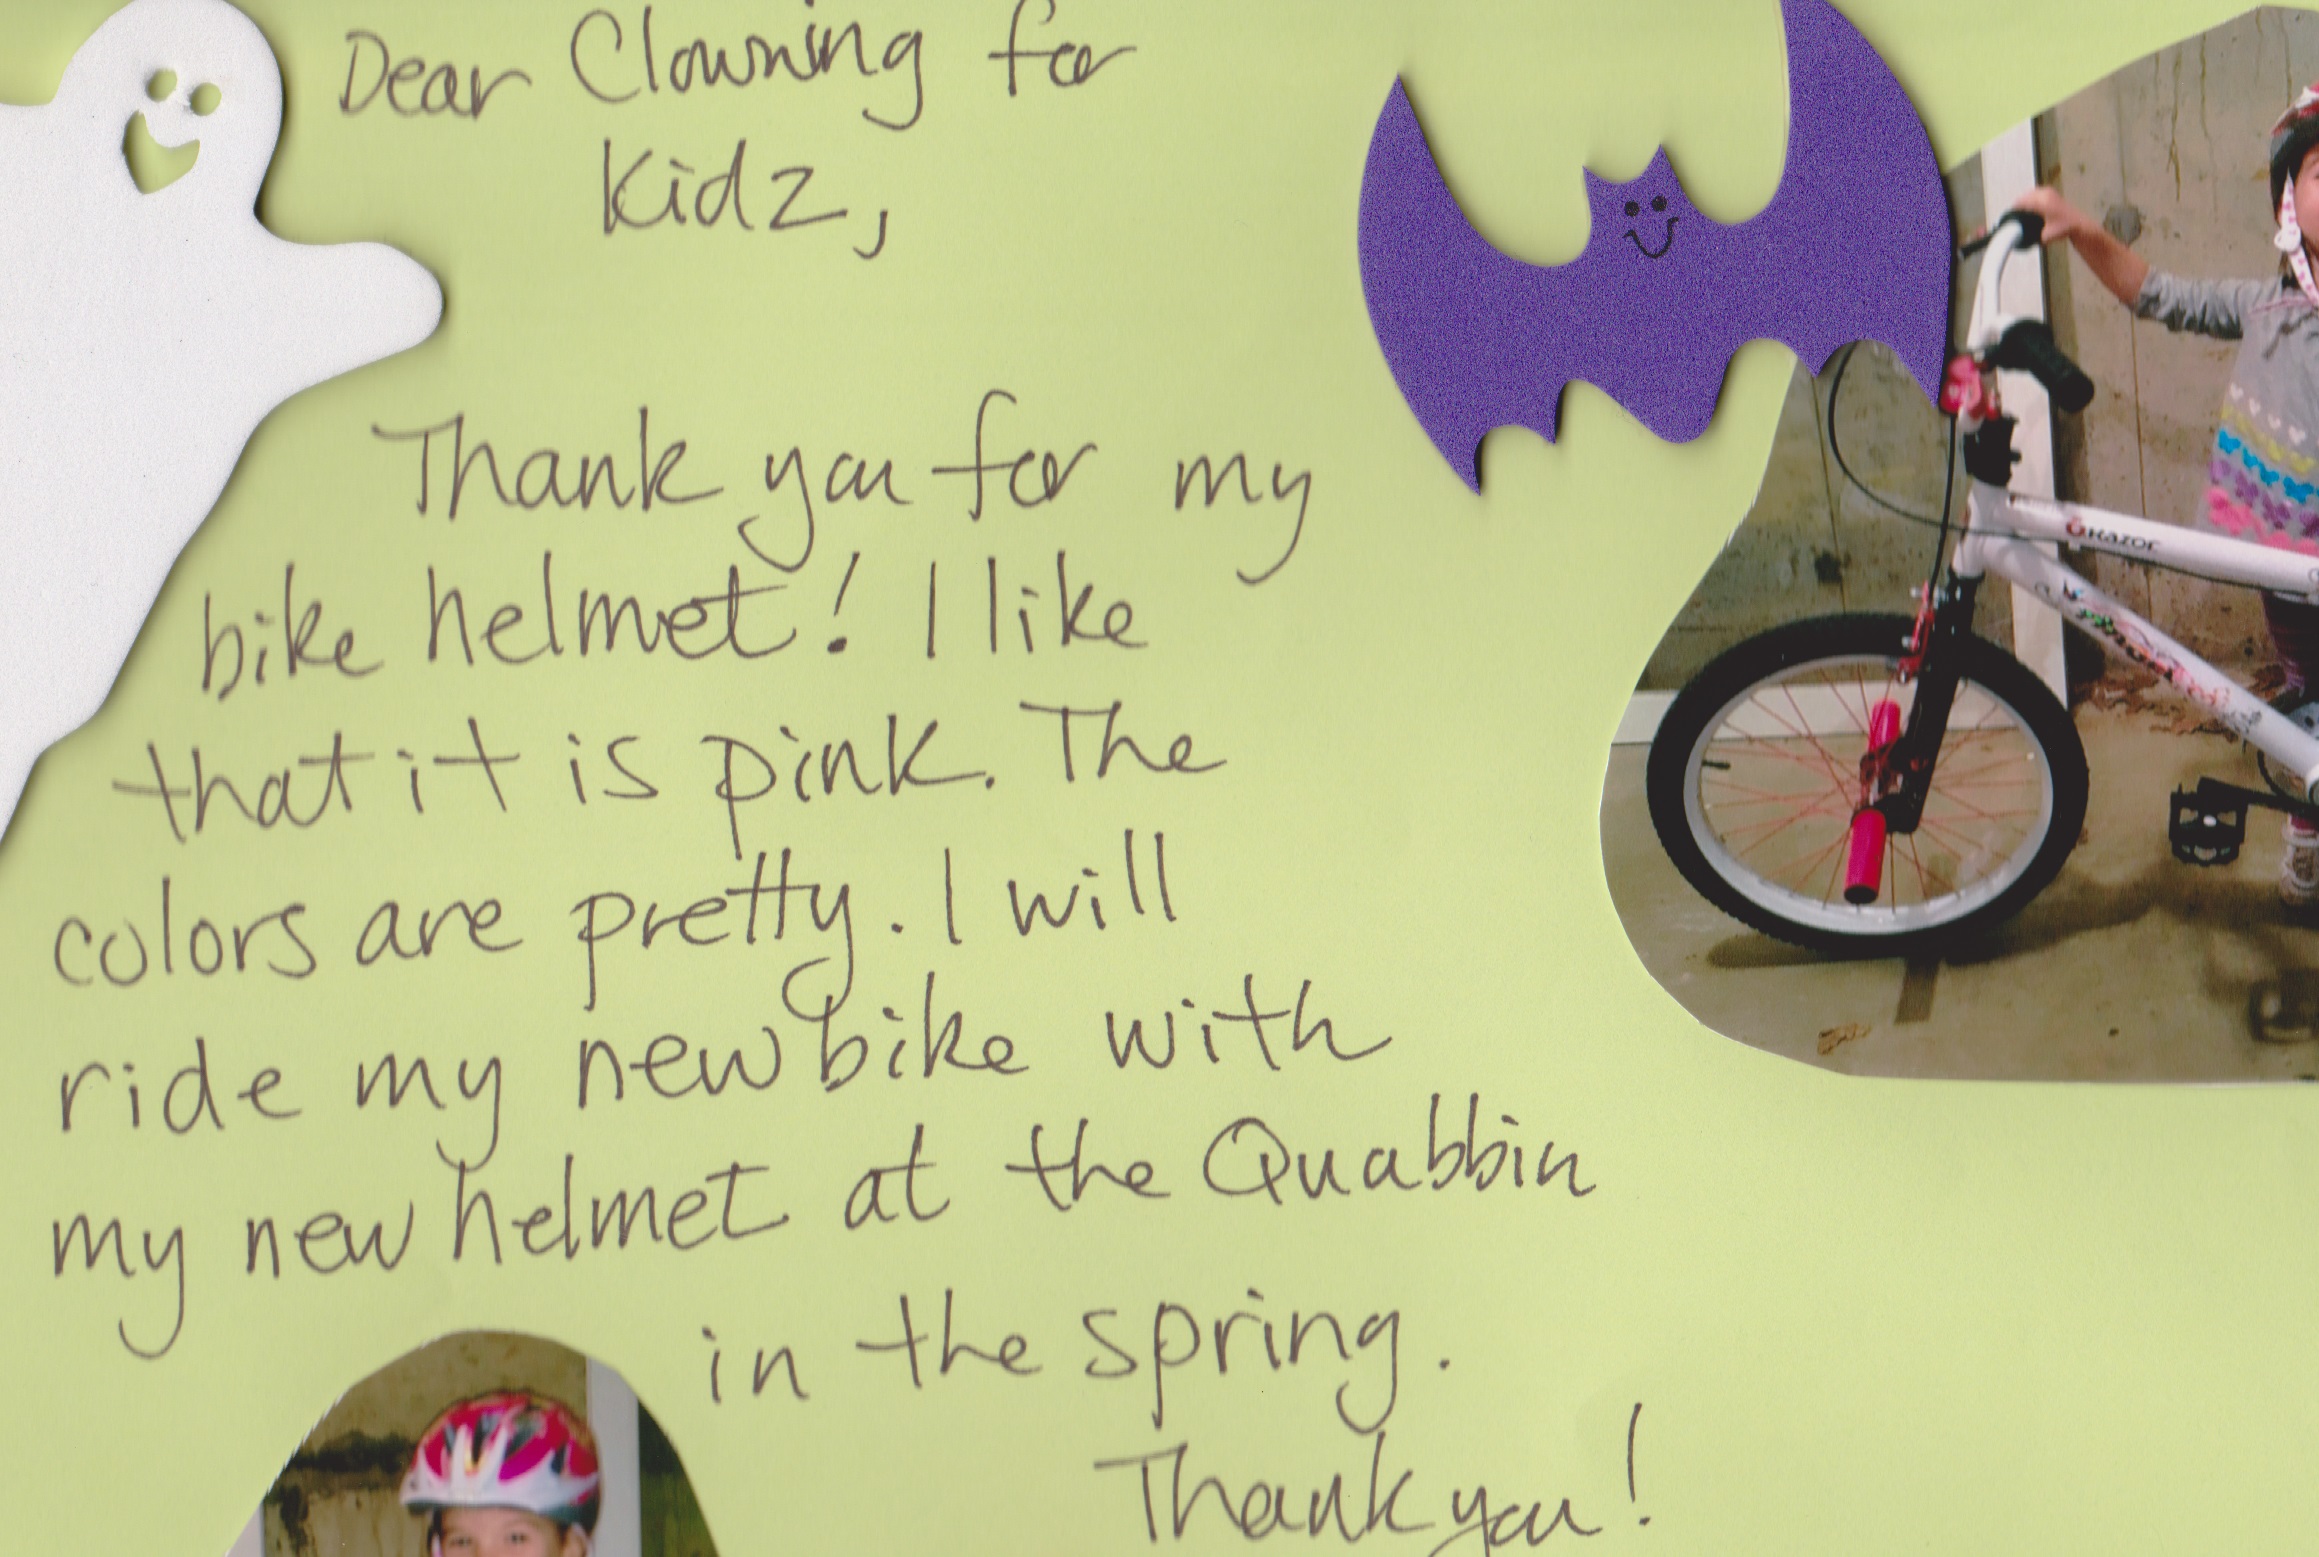 Dear Clowning for
Kidz,
Thank you for my
bike helmet! I like
that it is pink. The
colors are pretty. I will
ride my new bike with
my new helmet at the Quabbin
in the spring.
Thank you!
Razor